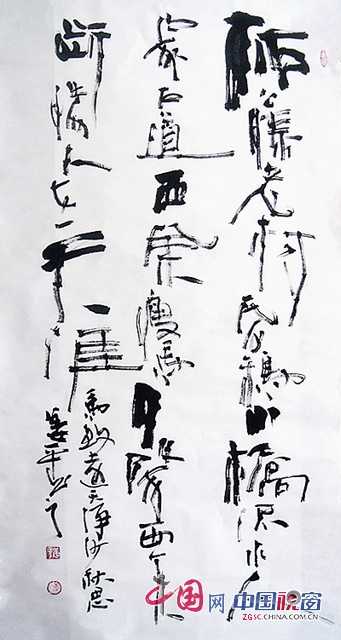 枯藤老树昏鴉小橋流水人
家古道西風瘦馬夕陽西下
断腸人在天涯
馬致遠天净沙秋思
中国网 中国视窗
ZGSC.CHINA.COM.CN